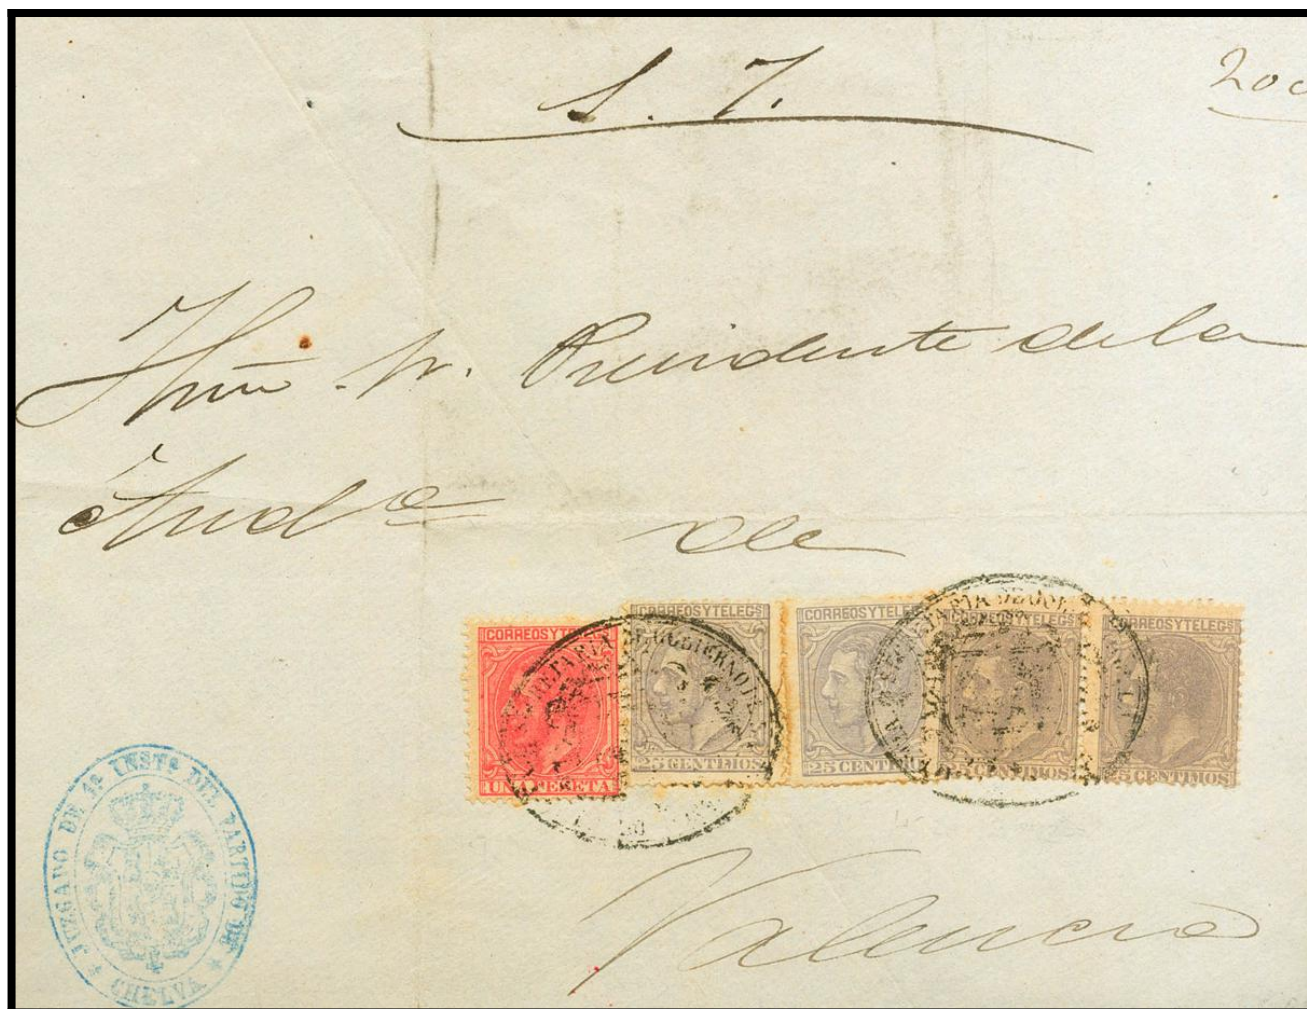 S. J.
200
Ylmo. Sr. Presidente de la
Auda
de
CORREOS Y TELEGS
UNA PESETA
CORREOS Y TELEGS
25 CENTIMOS
CORREOS Y TELEGS
25 CENTIMO
CORREOS Y TELEGS
25 CENTIMOS
CORREOS Y TELEGS
25 CENTIMOS
SECRETARIA DE GOBIERNO DE LA
JUZGADO DE 1ª INSTª DEL PARTIDO DE
CHELVA
Valencia